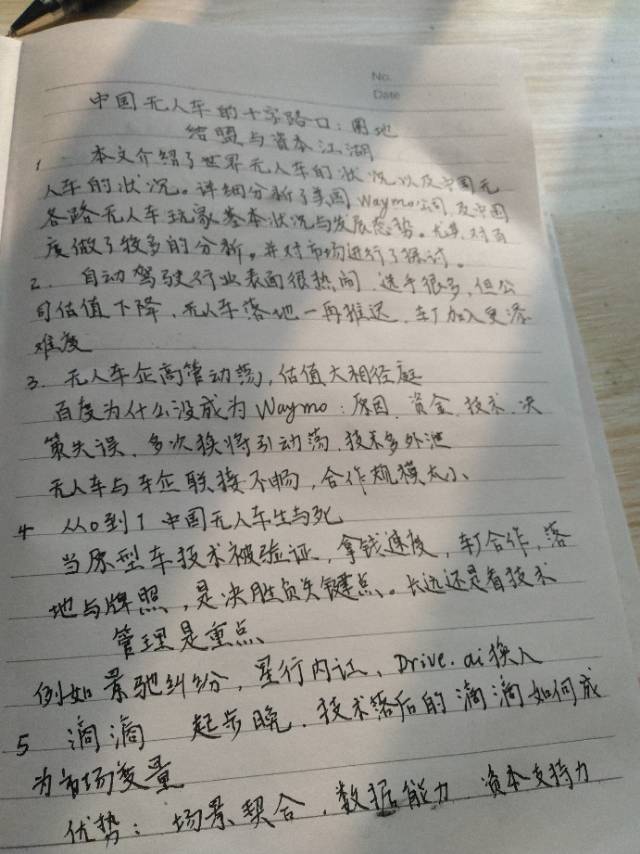 No.
Date
中国无人车的十字路口：困地
结盟与资本江湖
1 本文介绍了世界无人车的状况以及中国无
人车的状况。详细分析了美国Waymo公司及中国
各路无人车玩家基本状况与发展态势。尤其对百
度做了较多的分析。并对市场进行了探讨。
2、自动驾驶行业表面很热闹，选手很多，但公
司估值下降，无人车落地一再推迟，车厂加入更添
难度
3、无人车企高管动荡，估值大相径庭
百度为什么没成为Waymo：原因、资金、技术、决
策失误，多次换将引动荡，技术多外泄
无人车与车企联接不畅，合作规模太小、
4 从0到1 中国无人车生与死
当原型车技术被验证，拿钱速度，车厂合作，落
地与牌照，是决胜负关键点。长远还是看技术
管理是重点
例如 景驰纠纷，星行内讧、Drive.ai换人
5 滴滴 起步晚，技术落后的滴滴如何成
为市场变量
优势：场景契合，数据能力 资本支持力